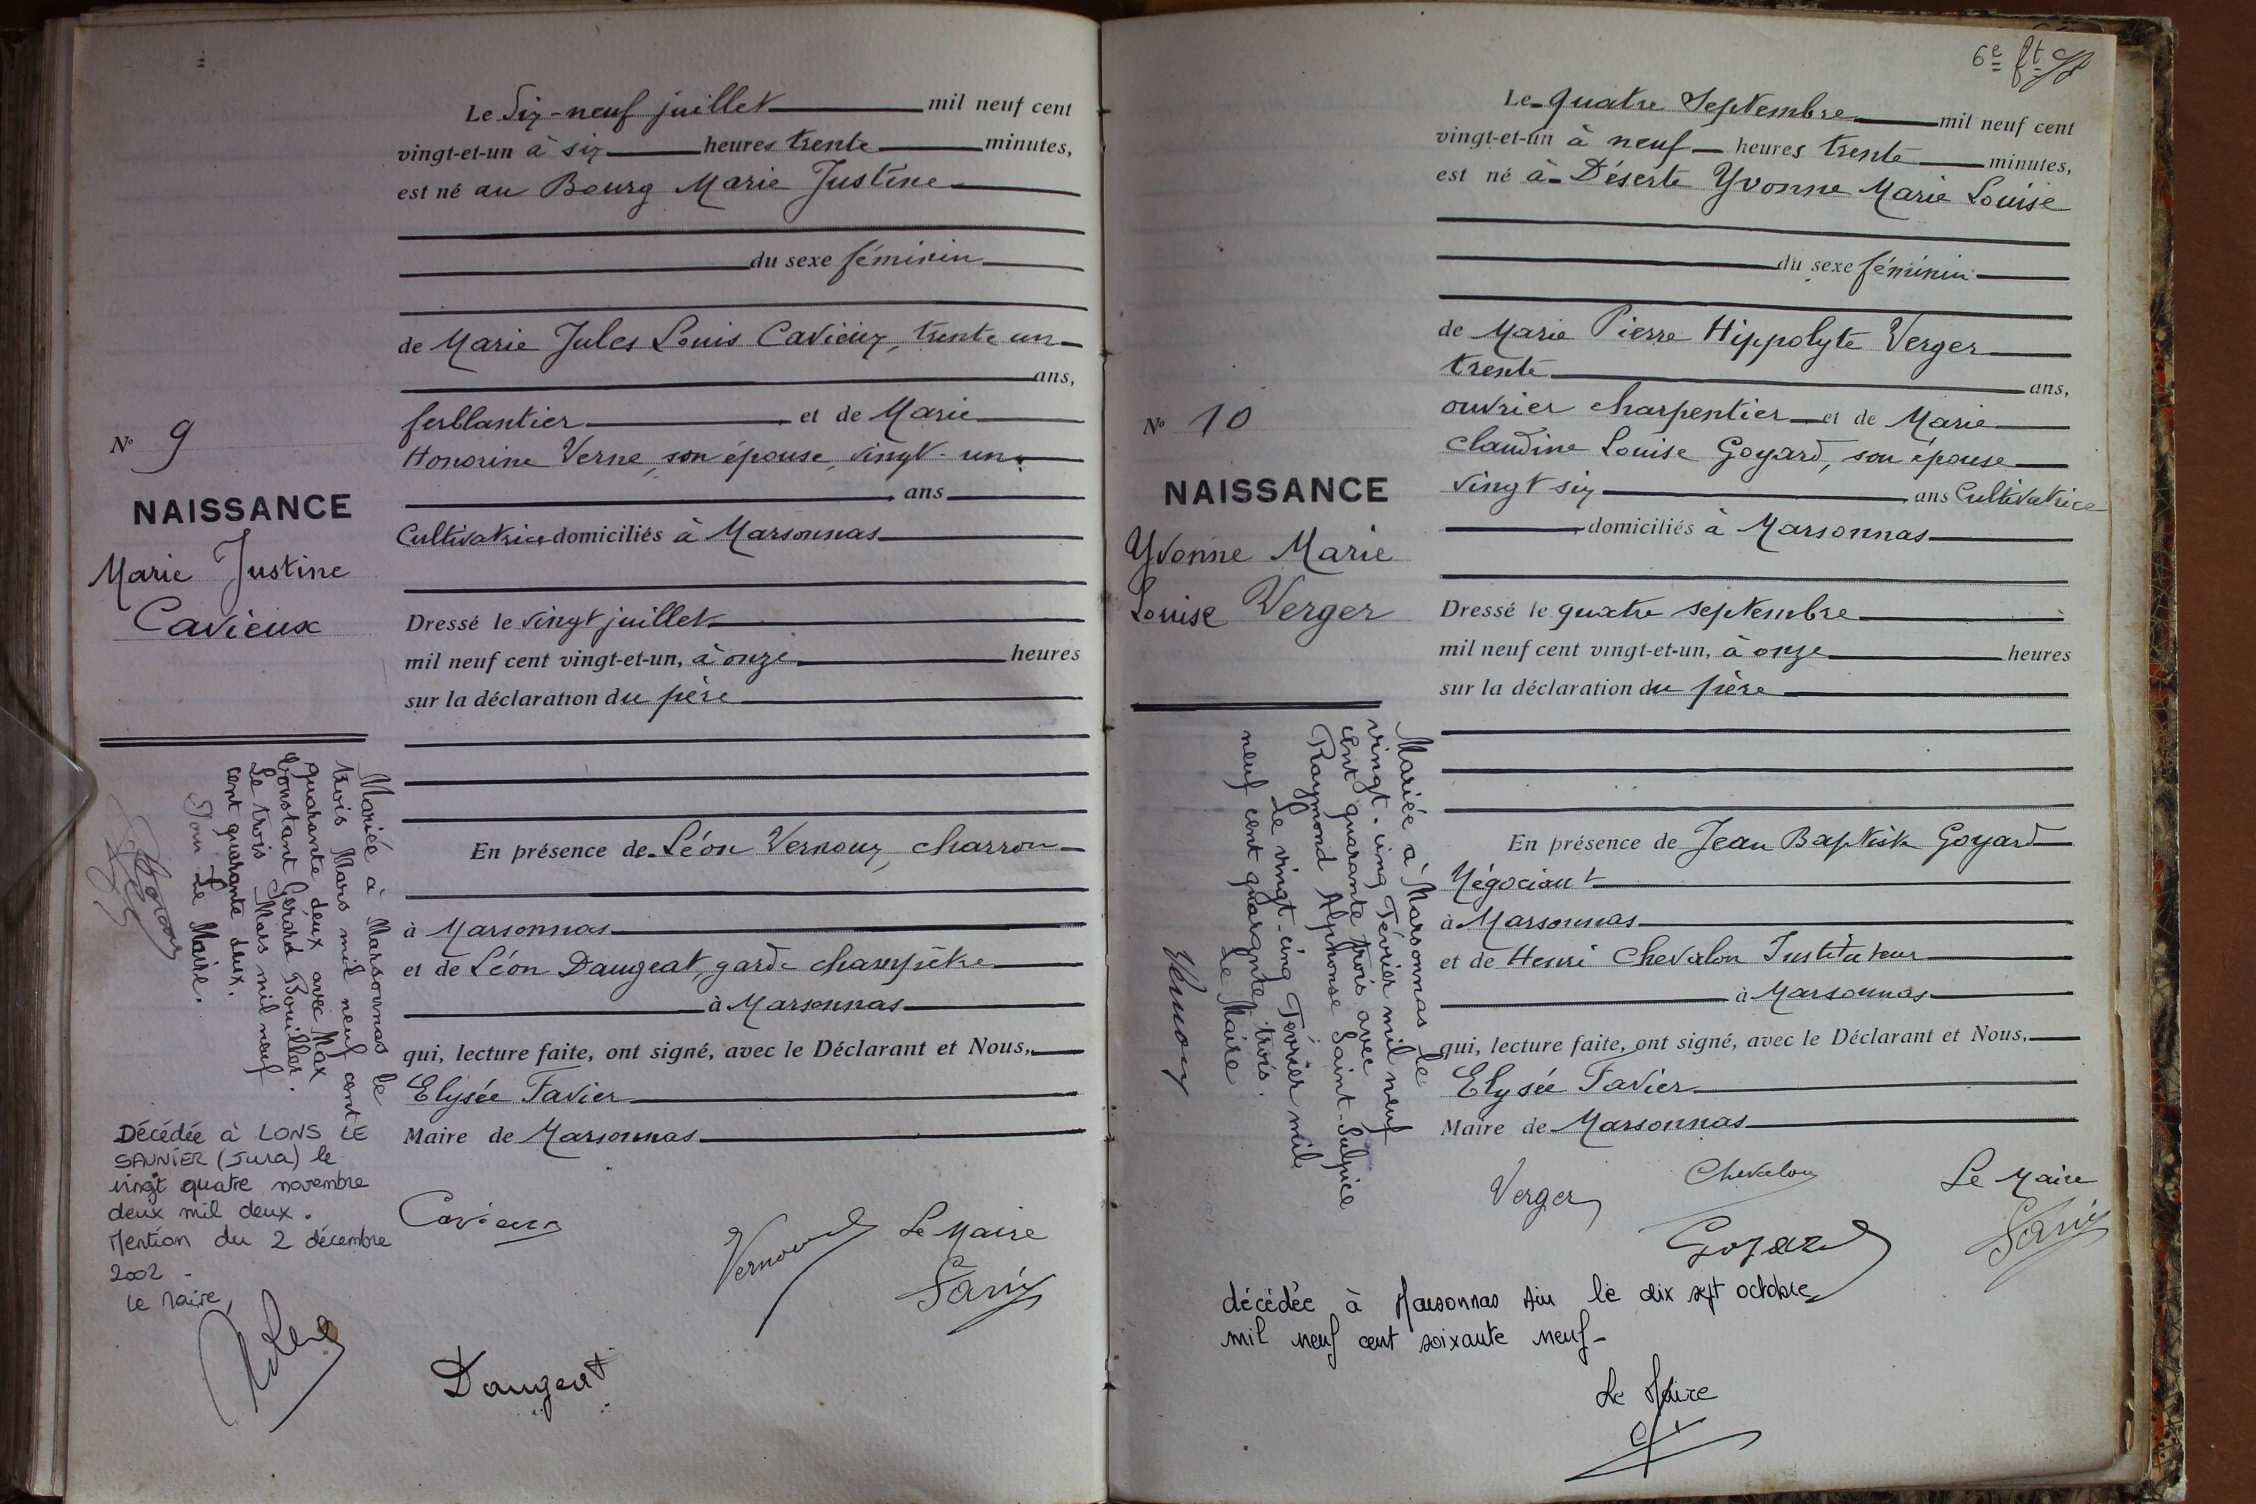 Le dix-neuf juillet mil neuf cent
vingt-et-un à six heures trente minutes,
est né au Bourg Marie Justine
du sexe féminin
de Marie Jules Louis Cavieux, trente un
ans,
ferblantier et de Marie
Honorine Verne, son épouse, vingt-un
ans
Cultivatrice domiciliés à Marsonnas
Dressé le vingt juillet
mil neuf cent vingt-et-un, à onze heures
sur la déclaration du père
En présence de Léon Vernoux, charron
à Marsonnas
et de Léon Daugeat, garde champêtre
à Marsonnas
qui, lecture faite, ont signé, avec le Déclarant et Nous,
Elysée Favier
Maire de Marsonnas
Cavieux
Vernoux
Le Maire
Favier
Daugeat
No 9
NAISSANCE
Marie Justine
Cavieux
Mariée à Marsonnas le
trois Mars mil neuf cent
quarante deux avec Max
Constant Gérard Bouillar.
Le trois Mars mil neuf
cent quarante deux.
Pour Le Maire.
Décédée à LONS LE
SAUNIER (Jura) le
vingt quatre novembre
deux mil deux.
Mention du 2 décembre
2002 -
Le Maire,
6e ft
Le quatre Septembre mil neuf cent
vingt-et-un à neuf heures trente minutes,
est né à Déserte Yvonne Marie Louise
du sexe féminin
de Marie Pierre Hippolyte Verger
trente ans,
ouvrier charpentier et de Marie
Claudine Louise Goyard, son épouse
vingt six ans Cultivatrice
domiciliés à Marsonnas
Dressé le quatre septembre
mil neuf cent vingt-et-un, à onze heures
sur la déclaration du père
En présence de Jean Baptiste Goyard
Négociant
à Marsonnas
et de Henri Chevalon Instituteur
à Marsonnas
qui, lecture faite, ont signé, avec le Déclarant et Nous,
Elysée Favier
Maire de Marsonnas
Verger
Chevalon
Goyard
Le Maire
Favier
No 10
NAISSANCE
Yvonne Marie
Louise Verger
Mariée à Marsonnas le
vingt-cinq Février mil neuf
cent quarante trois avec
Raymond Alphonse Saint-Sulpice
Le vingt-cinq Février mil
neuf cent quarante trois.
Le Maire
décédée à Marsonnas Ain le dix sept octobre
mil neuf cent soixante neuf-
Le Maire